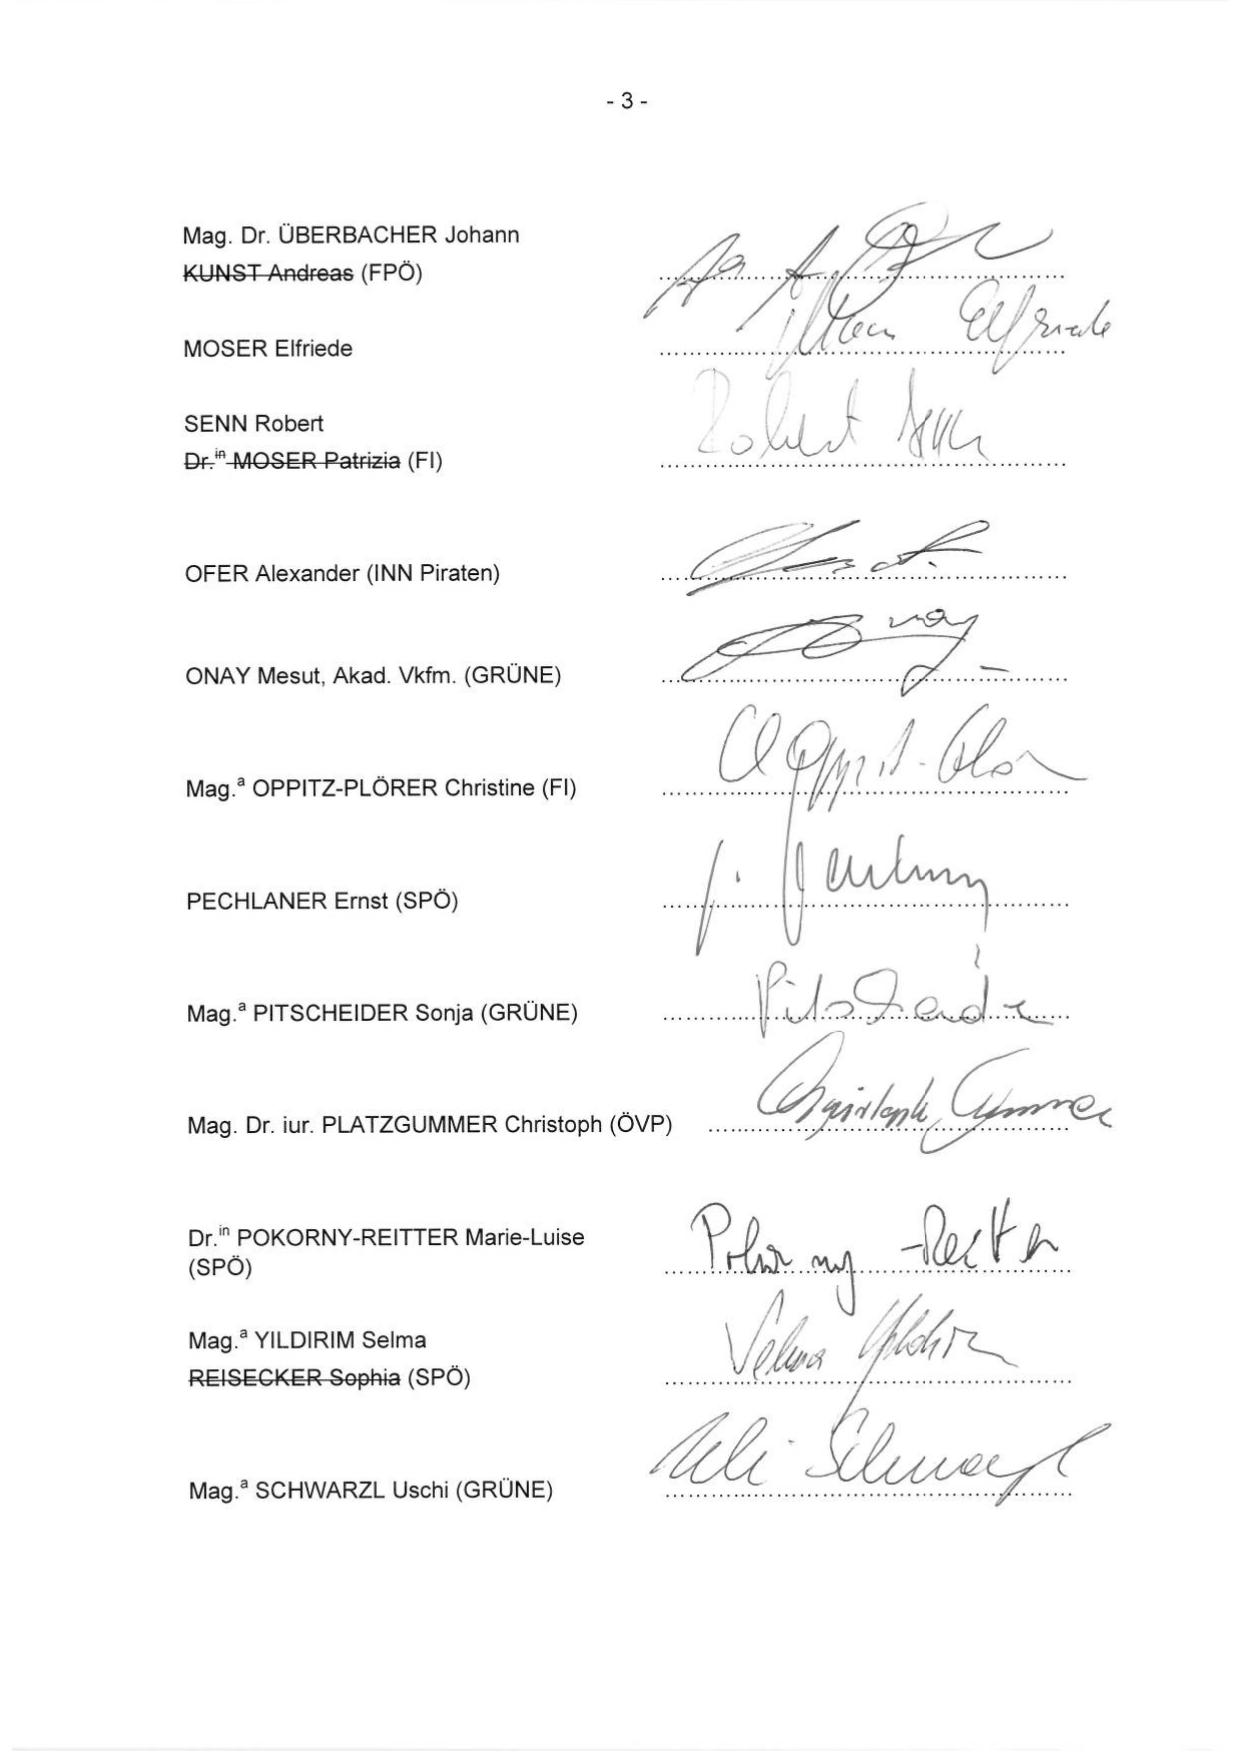 - 3 -
Mag. Dr. ÜBERBACHER Johann
KUNST Andreas (FPÖ)
MOSER Elfriede
Elfriede
SENN Robert
Robert Senn
Dr.in MOSER Patrizia (FI)
OFER Alexander (INN Piraten)
ONAY Mesut, Akad. Vkfm. (GRÜNE)
Mag.a OPPITZ-PLÖRER Christine (FI)
PECHLANER Ernst (SPÖ)
Mag.a PITSCHEIDER Sonja (GRÜNE)
Pitscheider
Mag. Dr. iur. PLATZGUMMER Christoph (ÖVP)
Dr.in POKORNY-REITTER Marie-Luise
Pokorny-Reitter
(SPÖ)
Mag.a YILDIRIM Selma
Selma Yildirim
REISECKER Sophia (SPÖ)
Mag.a SCHWARZL Uschi (GRÜNE)
Uschi Schwarzl